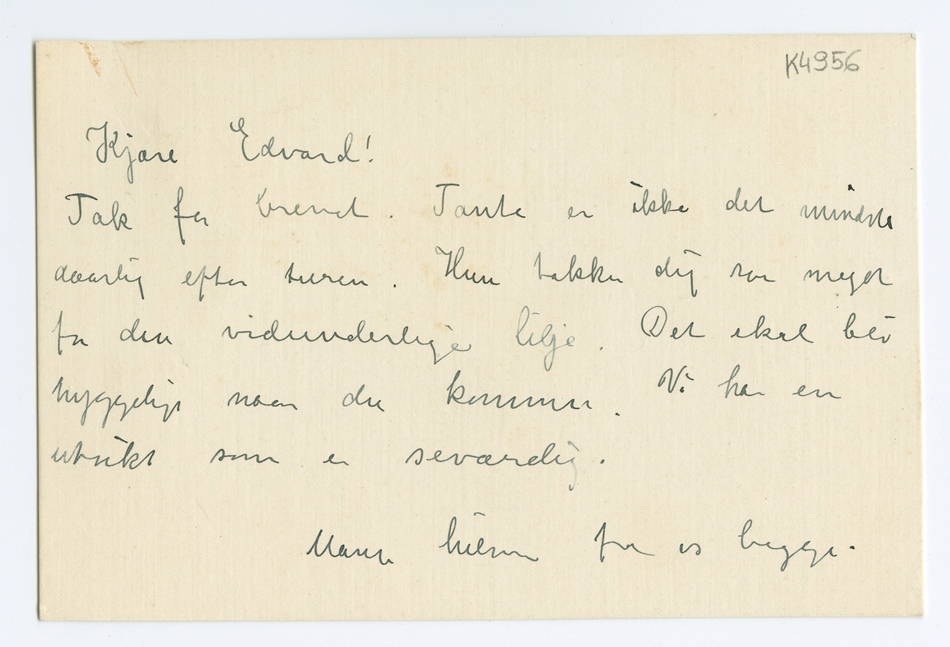 K4956
Kjære Edvard!
Tak for brevet. Tante er ikke det mindste
daarlig efter turen. Hun takker dig saa meget
for den vidunderlige lilje. Det skal bli
hyggelig naar du kommer. Vi har en
utsikt som er seværdig.
Mange hilsener fra os begge.